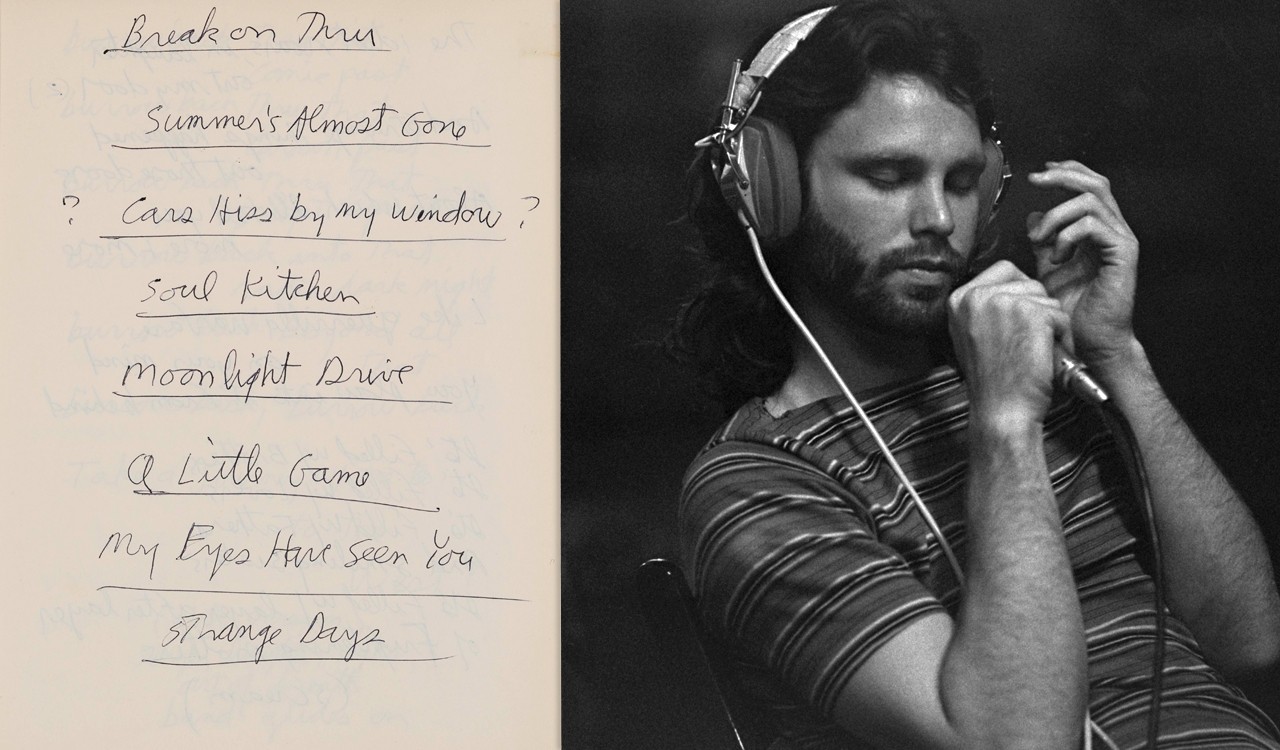 Break on Thru
Summer's Almost Gone
? Cars Hiss by my window ?
Soul Kitchen
Moonlight Drive
A Little Game
My Eyes Have Seen You
Strange Days